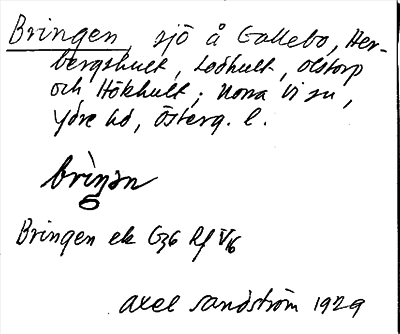 Bringen, sjö å Gallebo, Her-
bergshult, Lodhult, Olstorp
och Hökhult; Norra Vi sn,
Ydre hd, Österg. l.
brìŋən
Bringen ek G36 Rf V16
Axel Sandström 1929